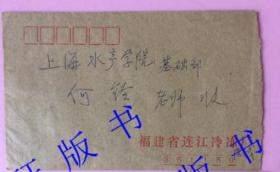 上海水产学院 基础部
何 老师 收
福建省连江冷冻
正版书
版书